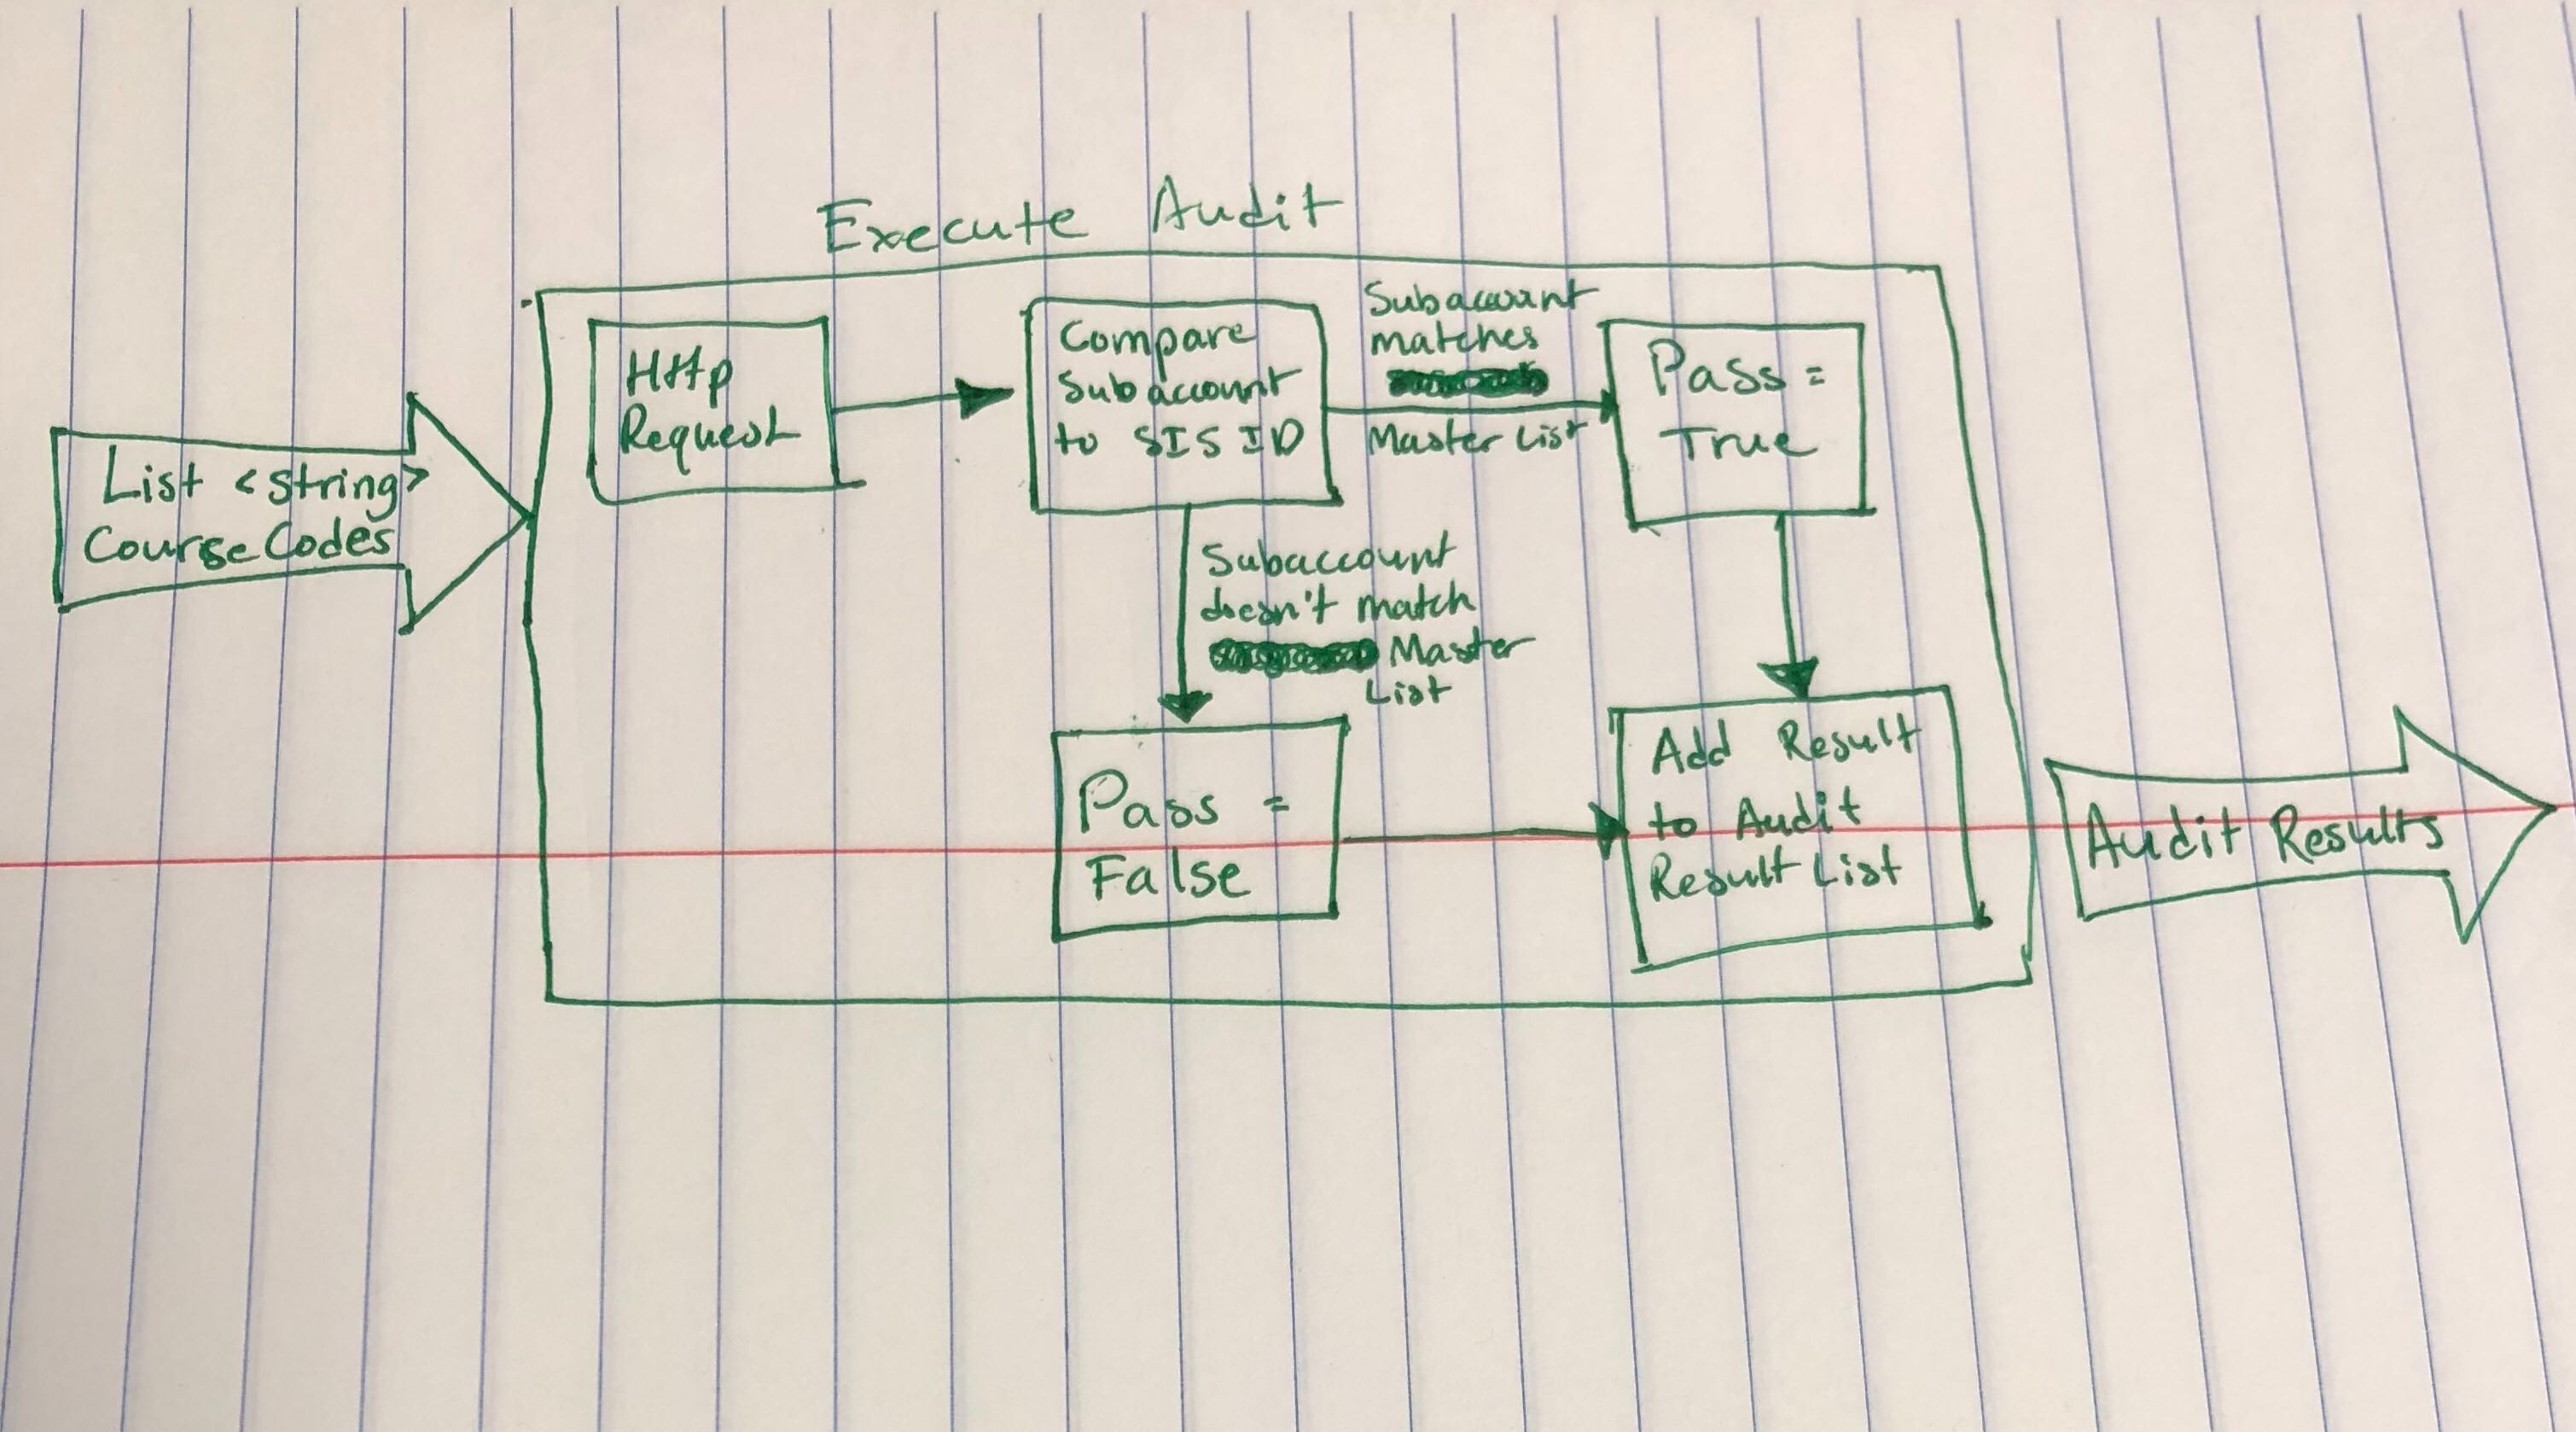 Execute Audit
List <string>
CourseCodes
Http
Request
Compare
Subaccount
to SIS ID
Subaccount
matches
Master List
Pass =
True
Subaccount
doesn't match
Master
List
Pass =
False
Add Result
to Audit
Result List
Audit Results